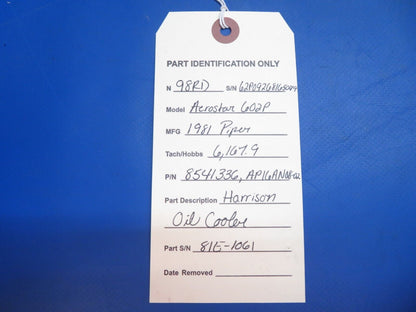 PART IDENTIFICATION ONLY
N 98RD S/N
Model Aerostar 602P
MFG 1981 Piper
Tach/Hobbs 6,167.9
P/N 8541336, AP16AN08-02
Part Description Harrison
Oil Cooler
Part S/N 81E-1061
Date Removed